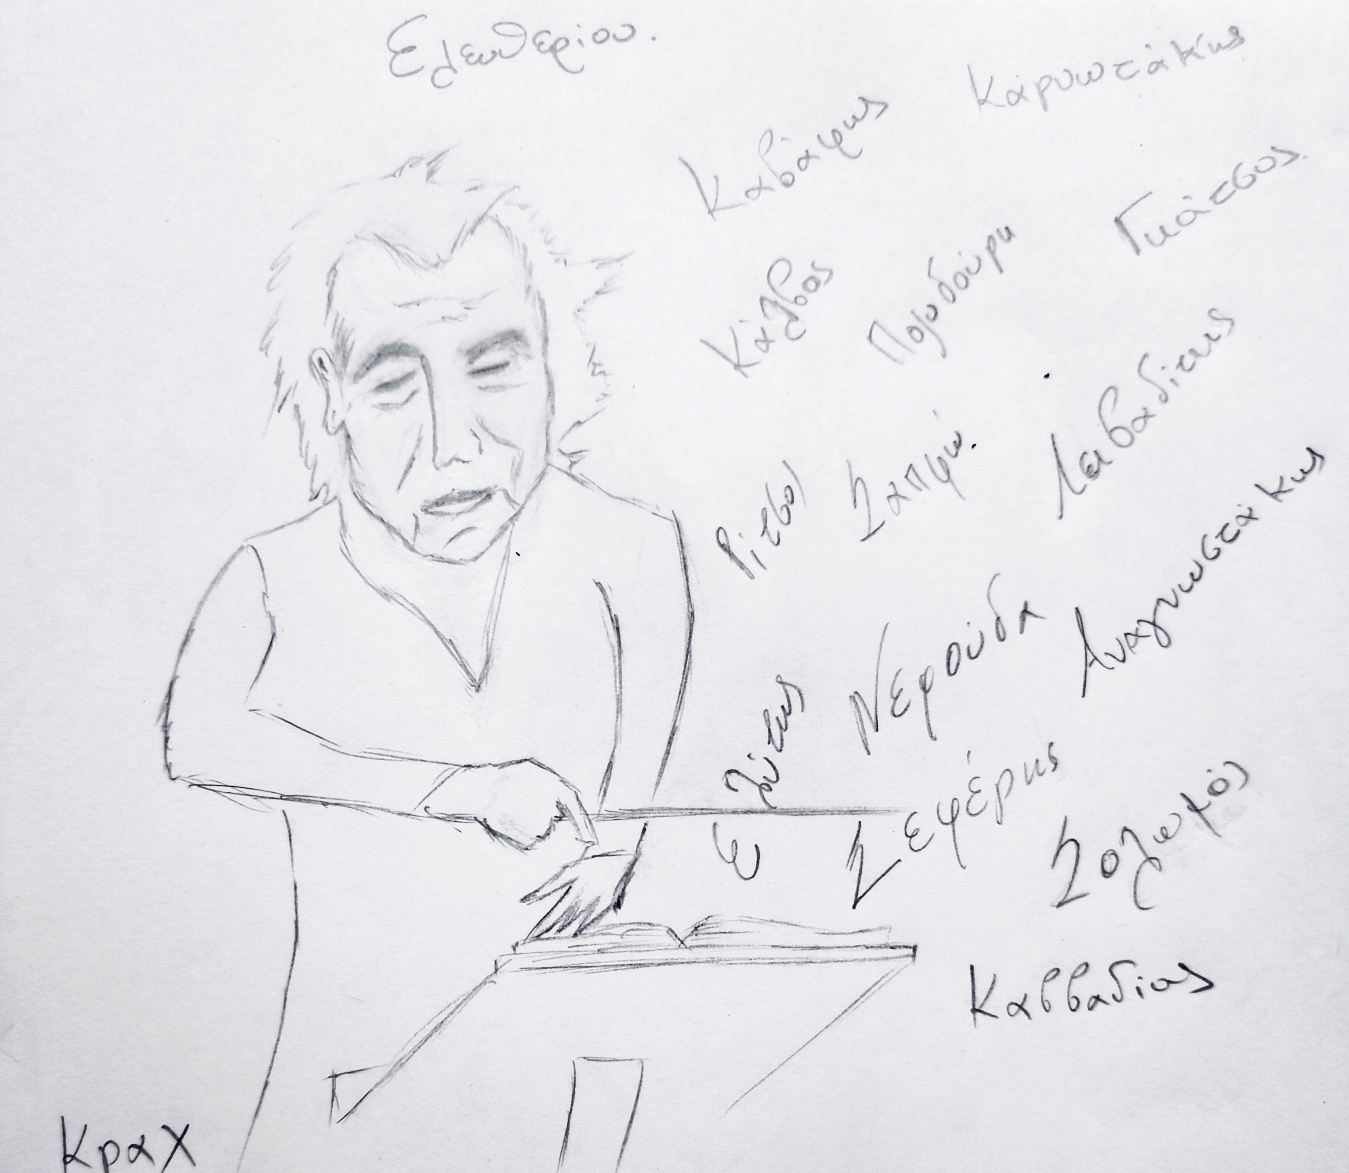 Ελευθερίου.
Καρυωτάκης
Καβάφης
Γκάτσος
Κάλβος
Πολυδούρη
Λειβαδίτης
Ρίτσος
Σαπφώ.
Αναγνωστάκης
Νερούδα
Ελύτης
Σεφέρης
Σολωμός
Καββαδίας
Κραχ